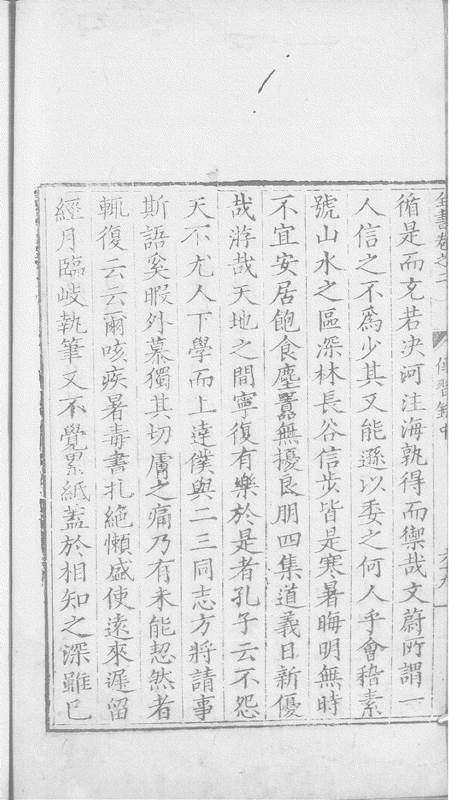 全書卷之二 傳習錄中
循是而充若决河注海孰得而禦哉文蔚所謂一
人信之不爲少其又能遜以委之何人乎會稽素
號山水之區深林長谷信步皆是寒暑晦明無時
不宜安居飽食塵囂無擾良朋四集道義日新優
哉游哉天地之間寧復有樂於是者孔子云不怨
天不尤人下學而上達僕與二三同志方將請事
斯語奚暇外慕獨其切膚之痛乃有未能恝然者
輒復云云爾咳疾暑毒書扎絶懶盛使遠來遲留
經月臨岐執筆又不覺累紙蓋於相知之深雖已